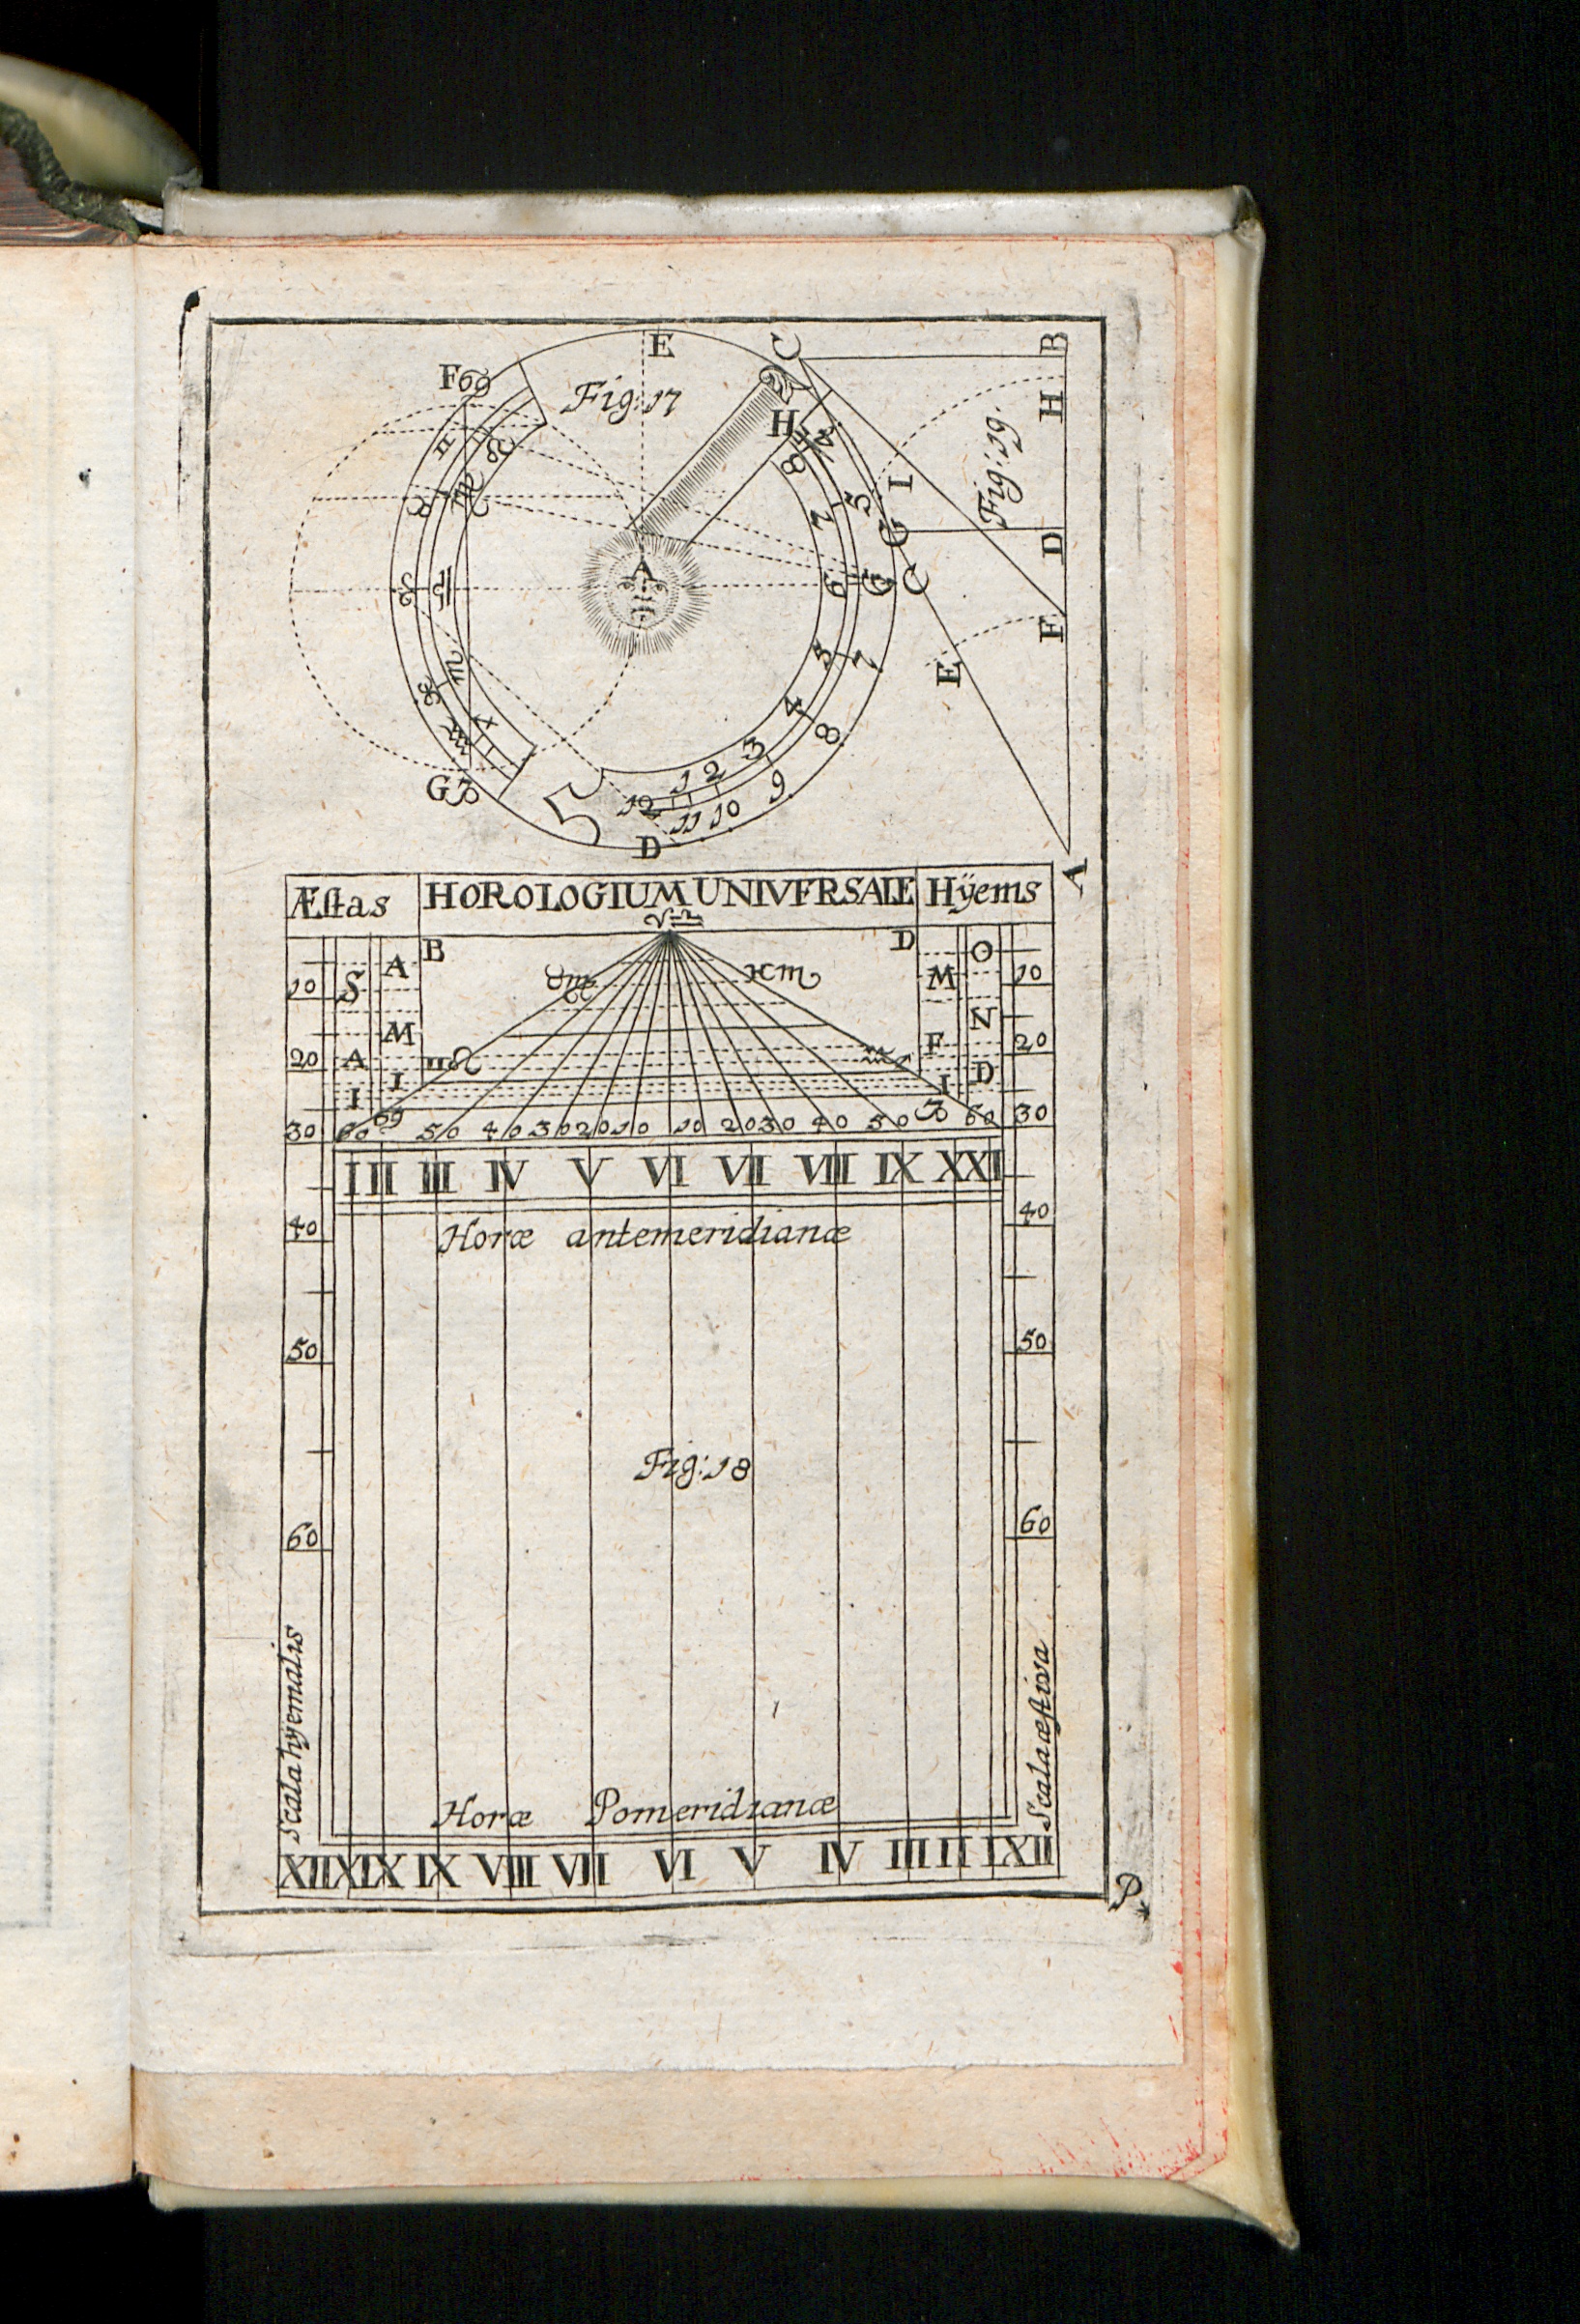 E
C
B
F ♋
Fig: 17
H
H
♊ ♌
4
8
♉ ♍
5
I
Fig: 19.
7
G
D
A
♈ ♎
6
G
C
F
5
7
E
♓ ♏
4
8
♒ ♐
3
9
G ♑
5
12 1 2
11 10
D
A
Æstas HOROLOGIUM UNIVERSALE Hÿems
♈ ♎
B D
A O
10 S ♉ ♍ ♓ ♏ M 10
M N
20 A ♊ ♌ ♒ ♐ F 20
I D
I I
30 60 ♋ 50 40 30 20 10 10 20 30 40 50 ♑ 60 30
I II III IV V VI VII VIII IX X XI
40 40
Horæ antemeridianæ
50 50
Fig: 18
60 60
Scala hÿemalis
Scala æstiva
Horæ Pomeridianæ
XII XI X IX VIII VII VI V IV III II I XII
P